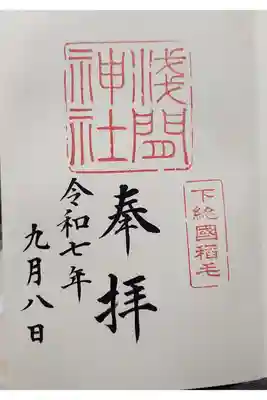 淺間
神社
下総國稲毛
奉拝
令和七年
九月八日